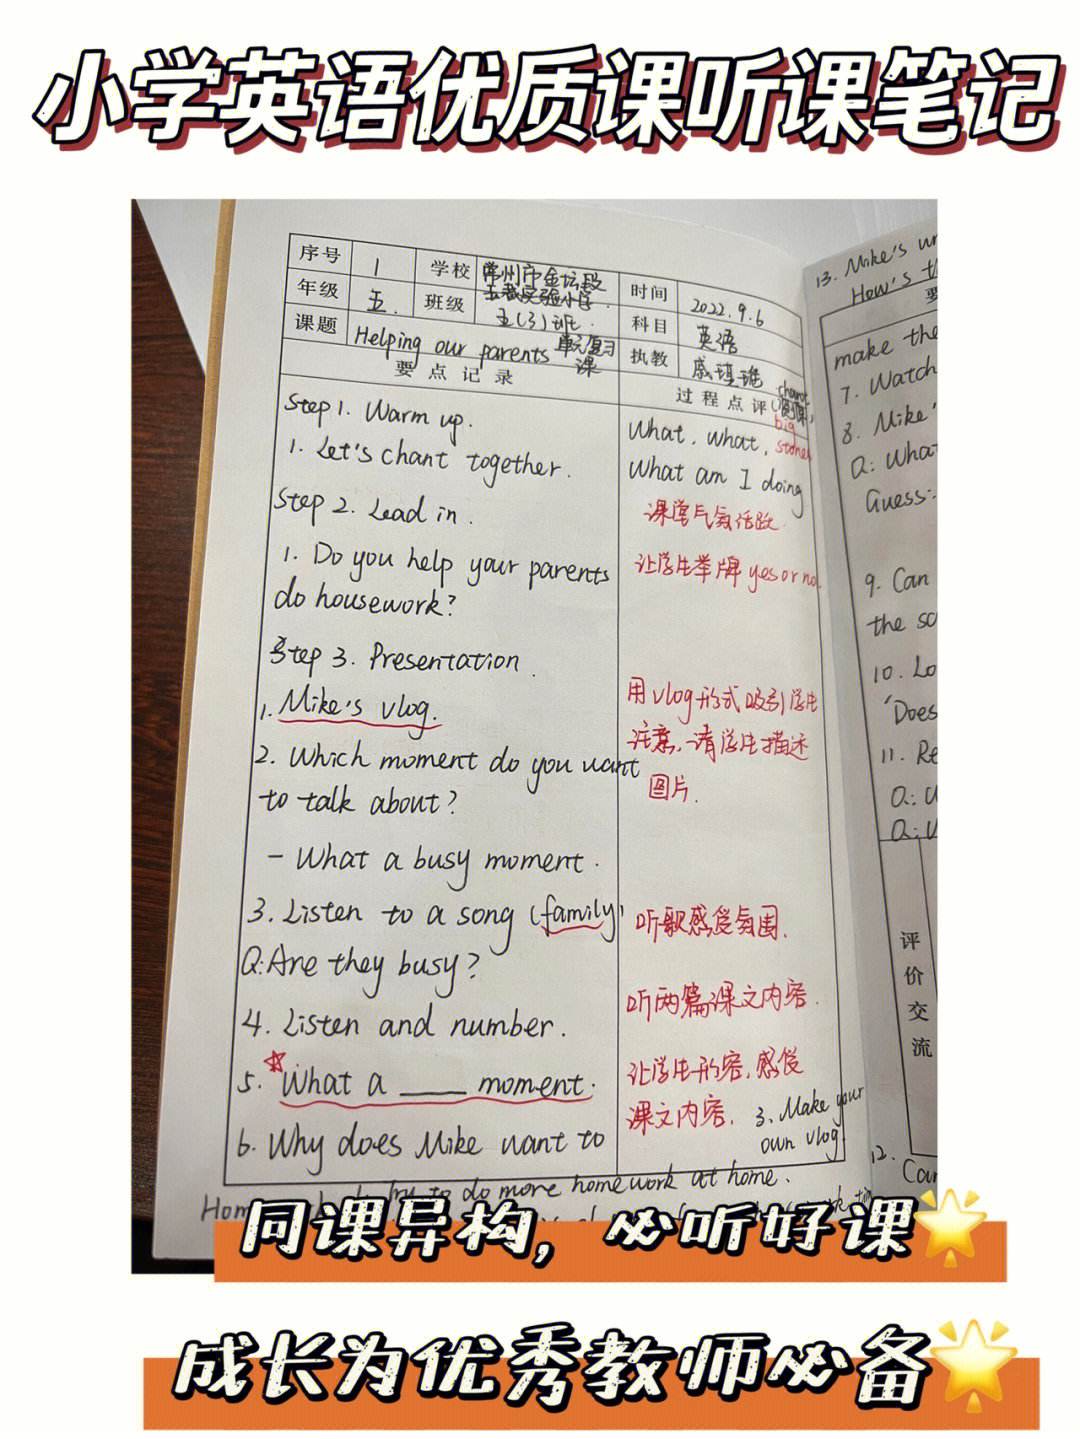 小学英语优质课听课笔记
序号 1 学校 常州市金坛段 时间 2022.9.6
年级 五. 班级 五(3)班. 科目 英语
课题 Helping our parents 单元复习课 执教
要点记录 过程点评
Step 1. Warm up.
1. Let's chant together.
What, what,
big
What am I doing
课堂气氛活跃
Step 2. Lead in.
1. Do you help your parents
do housework?
让学生举牌 yes or no.
Step 3. Presentation.
1. Mike's vlog.
用vlog形式吸引学生
注意,请学生描述
图片.
2. Which moment do you want
to talk about?
- What a busy moment.
3. Listen to a song (family)
听歌感受氛围.
Q: Are they busy?
听两篇课文内容.
4. Listen and number.
5. What a ____ moment.
让学生形容,感受
课文内容.
3. Make your
own vlog
6. Why does Mike want to
to do more homework at home.
13. Mike's
How's
make the
7. Watch
8. Mike'
Q: What
Guess:
9. Can
the
10. Lo
'Does
11. Re
Q:
Q:
评价交流
12.
同课异构，必听好课
成长为优秀教师必备